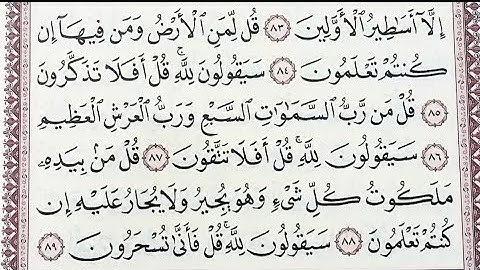 إِلَّآ أَسَٰطِيرُ ٱلْأَوَّلِينَ ٨٣ قُل لِّمَنِ ٱلْأَرْضُ وَمَن فِيهَآ إِن
كُنتُمْ تَعْلَمُونَ ٨٤ سَيَقُولُونَ لِلَّهِ ۚ قُلْ أَفَلَا تَذَكَّرُونَ
٨٥ قُلْ مَن رَّبُّ ٱلسَّمَٰوَٰتِ ٱلسَّبْعِ وَرَبُّ ٱلْعَرْشِ ٱلْعَظِيمِ
٨٦ سَيَقُولُونَ لِلَّهِ ۚ قُلْ أَفَلَا تَتَّقُونَ ٨٧ قُلْ مَنۢ بِيَدِهِۦ
مَلَكُوتُ كُلِّ شَىْءٍ وَهُوَ يُجِيرُ وَلَا يُجَارُ عَلَيْهِ إِن
كُنتُمْ تَعْلَمُونَ ٨٨ سَيَقُولُونَ لِلَّهِ ۚ قُلْ فَأَنَّىٰ تُسْحَرُونَ ٨٩